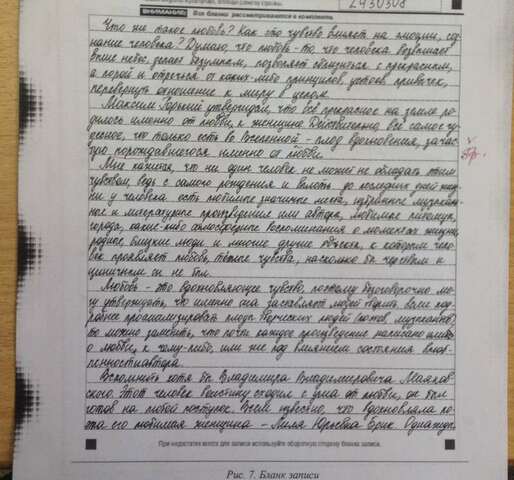 2430308
ВНИМАНИЕ! Все бланки рассматриваются в комплекте
Что же такое любовь? Как это чувство влияет на эмоции, соз-
нание человека? Думаю, что любовь - то, что человека возвышает
выше небес, делает безумцем, позволяет сблизиться с прекрасным,
а порой и отречься от каких-либо принципов, устоев, привычек,
перевернуть отношение к миру в целом.
Максим Горький утверждал, что всё прекрасное на земле ро-
дилось именно от любви к женщине. Действительно, всё самое чу-
десное, что только есть во Вселенной - плод вдохновения, зачас-
тую порождавшегося именно от любви.
Мне кажется, что ни один человек не может не обладать этим
чувством, ведь с самого рождения и вплоть до последних дней жиз-
ни у человека есть любимые значимые места, избранное музыкаль-
ное и литературное произведение или автора, любимые
города, какие-либо атмосферные воспоминания о моментах жизни,
родные, близкие люди и многие другие объекты, к которым чело-
век проявляет любовь, тёплые чувства, насколько бы черствым и
циничным он не был.
Любовь - это вдохновляющее чувство, поэтому безоговорочно мо-
гу утверждать, что именно она заставляет людей творить. Если под-
робнее проанализировать творческих людей (поэтов, музыкантов),
то можно заметить, что почти каждое произведение написано именно
о любви, к чему-либо, или же под влиянием состояния влюб-
ленности автора.
Вспомнить хотя бы Владимира Владимировича Маяков-
ского. Этот человек воистину сходил с ума от любви, он был
готов на любой поступок. Всем известно, что вдохновляла по-
эта его любимая женщина - Лиля Юрьевна Брик. Однажды
При недостатке места для записи используйте оборотную сторону бланка записи.
Рис. 7. Бланк записи